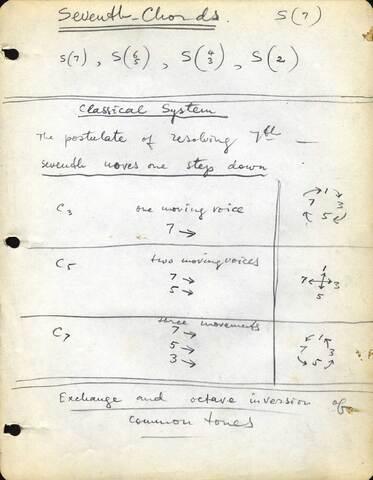 Seventh-Chords. S(7)
S(7), S(6/5), S(4/3), S(2)
Classical System
The postulate of resolving 7th —
seventh moves one step down
C3 one moving voice
7 →
1
7 3
5
C5 two moving voices
7 →
5 →
1
7 3
5
C7 three movements
7 →
5 →
3 →
1
7 3
5
Exchange and octave inversion of
common tones